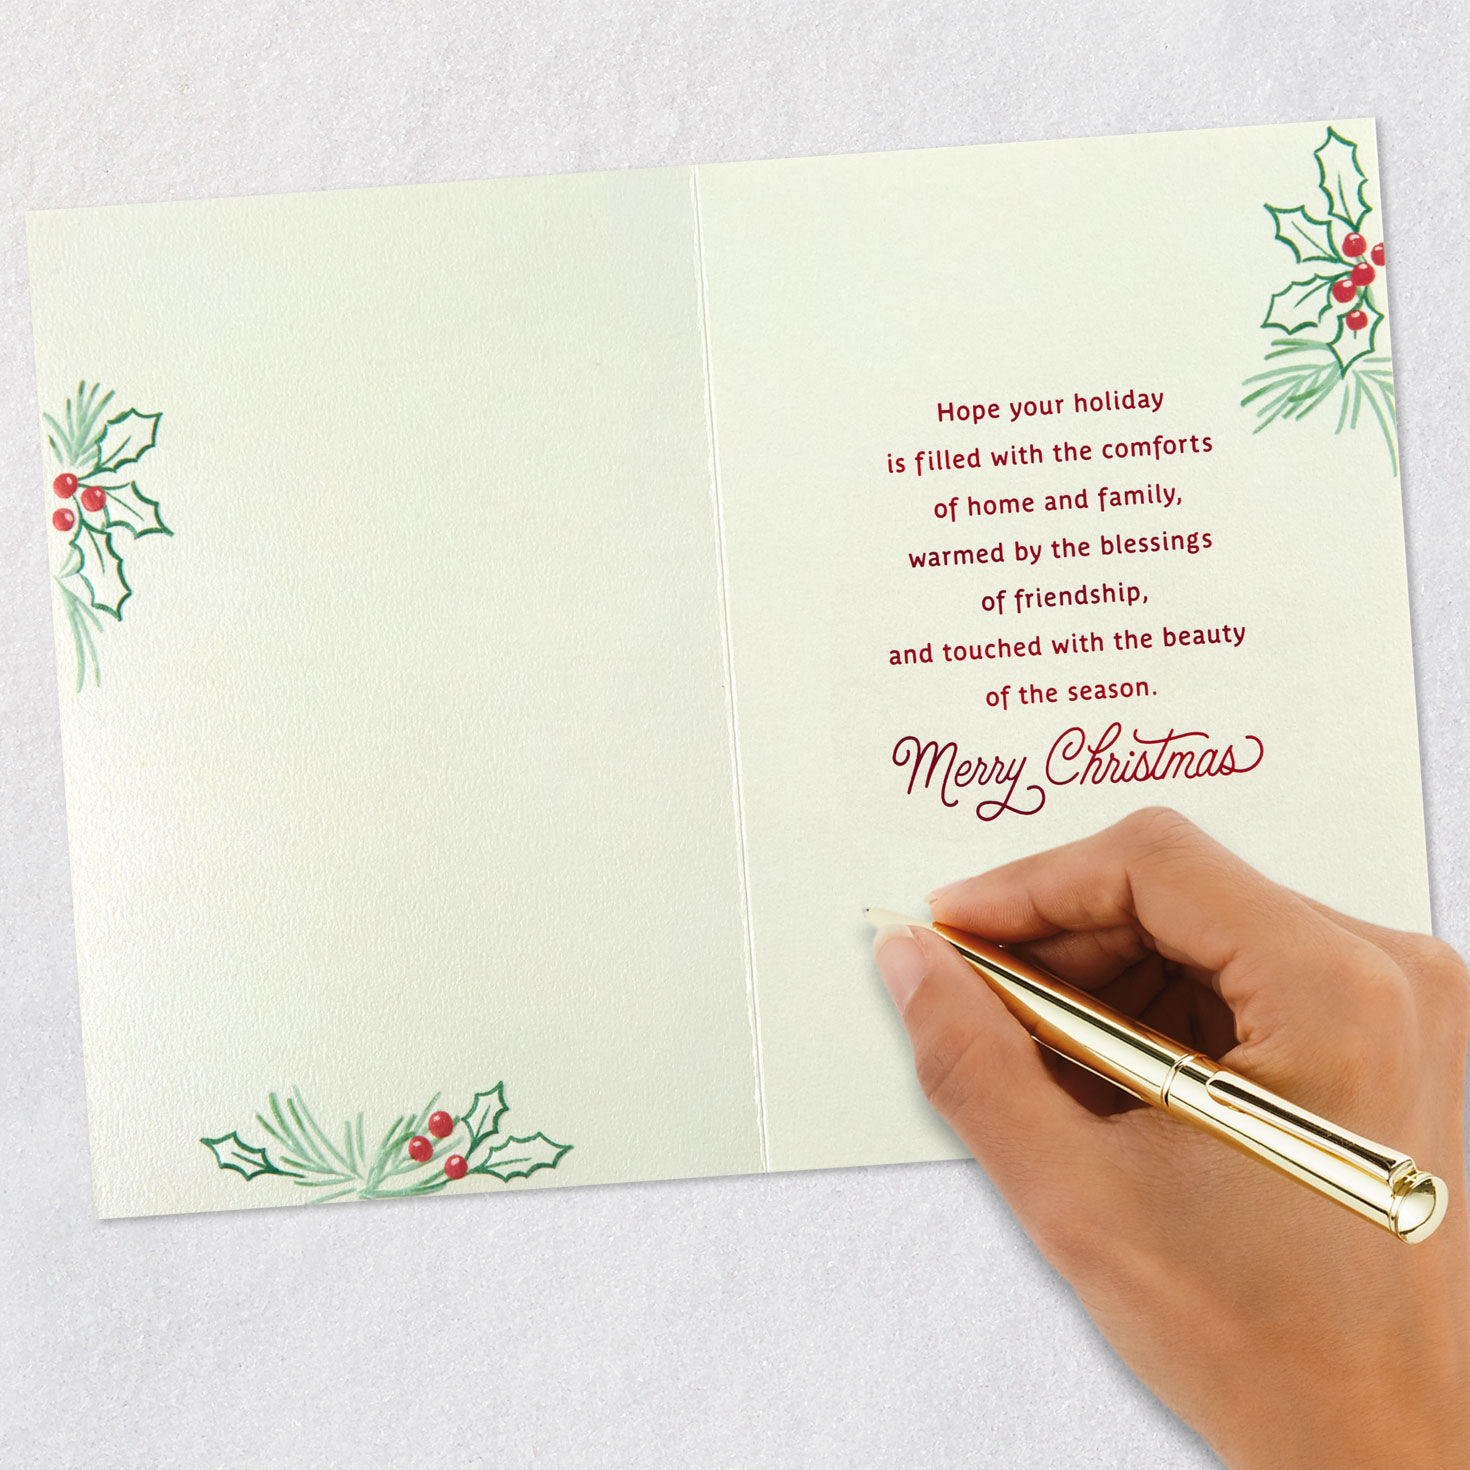 Hope your holiday
is filled with the comforts
of home and family,
warmed by the blessings
of friendship,
and touched with the beauty
of the season.
Merry Christmas